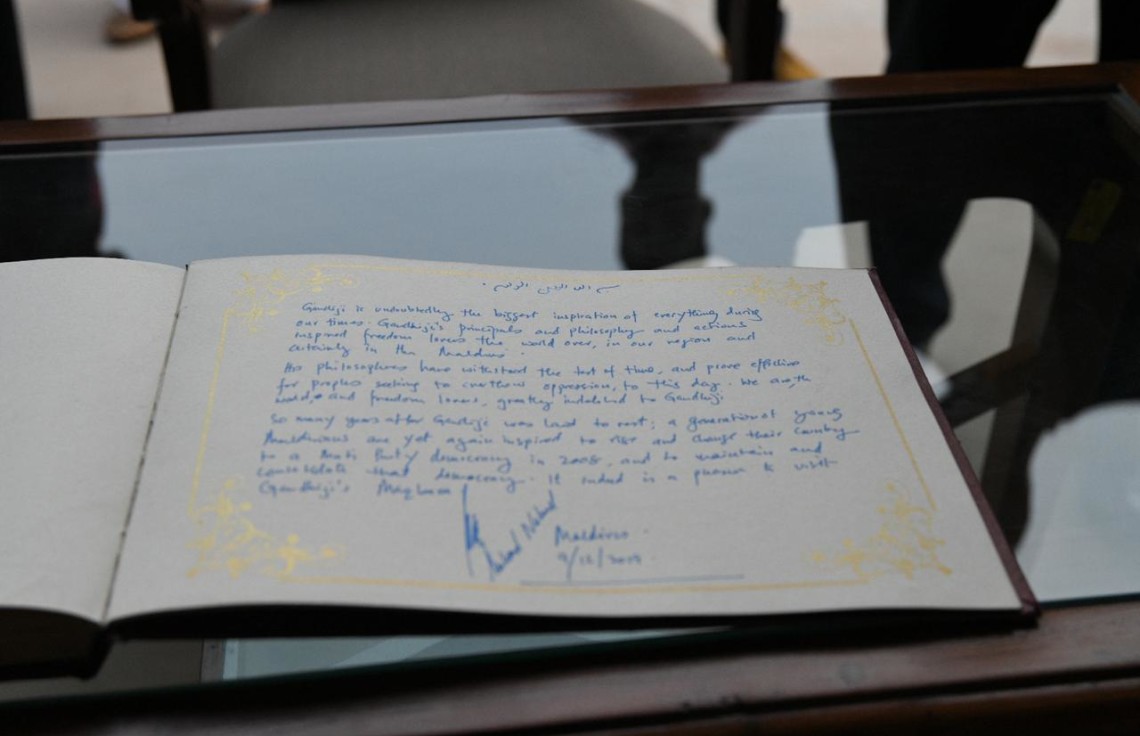 بسم الله الرحمن الرحيم
Gandhiji is undoubtedly the biggest inspiration of everything during
our times. Gandhiji's principals and philosophy and actions
inspired freedom lovers the world over, in our region and
certainly in the Maldives.
His philosophies have withstood the test of time, and prove effective
for peoples seeking to overthrow oppression, to this day. We
and freedom lovers, greatly indebted to Gandhiji
So many years after Gandhiji was laid to rest; a generation of young
Maldivians are yet again inspired to rise and change their country
to a Multi Party democracy in 2008, and to maintain and
consolidate that democracy. It indeed is a pleasure to visit
Gandhiji's
Maldives.
9/12/2019